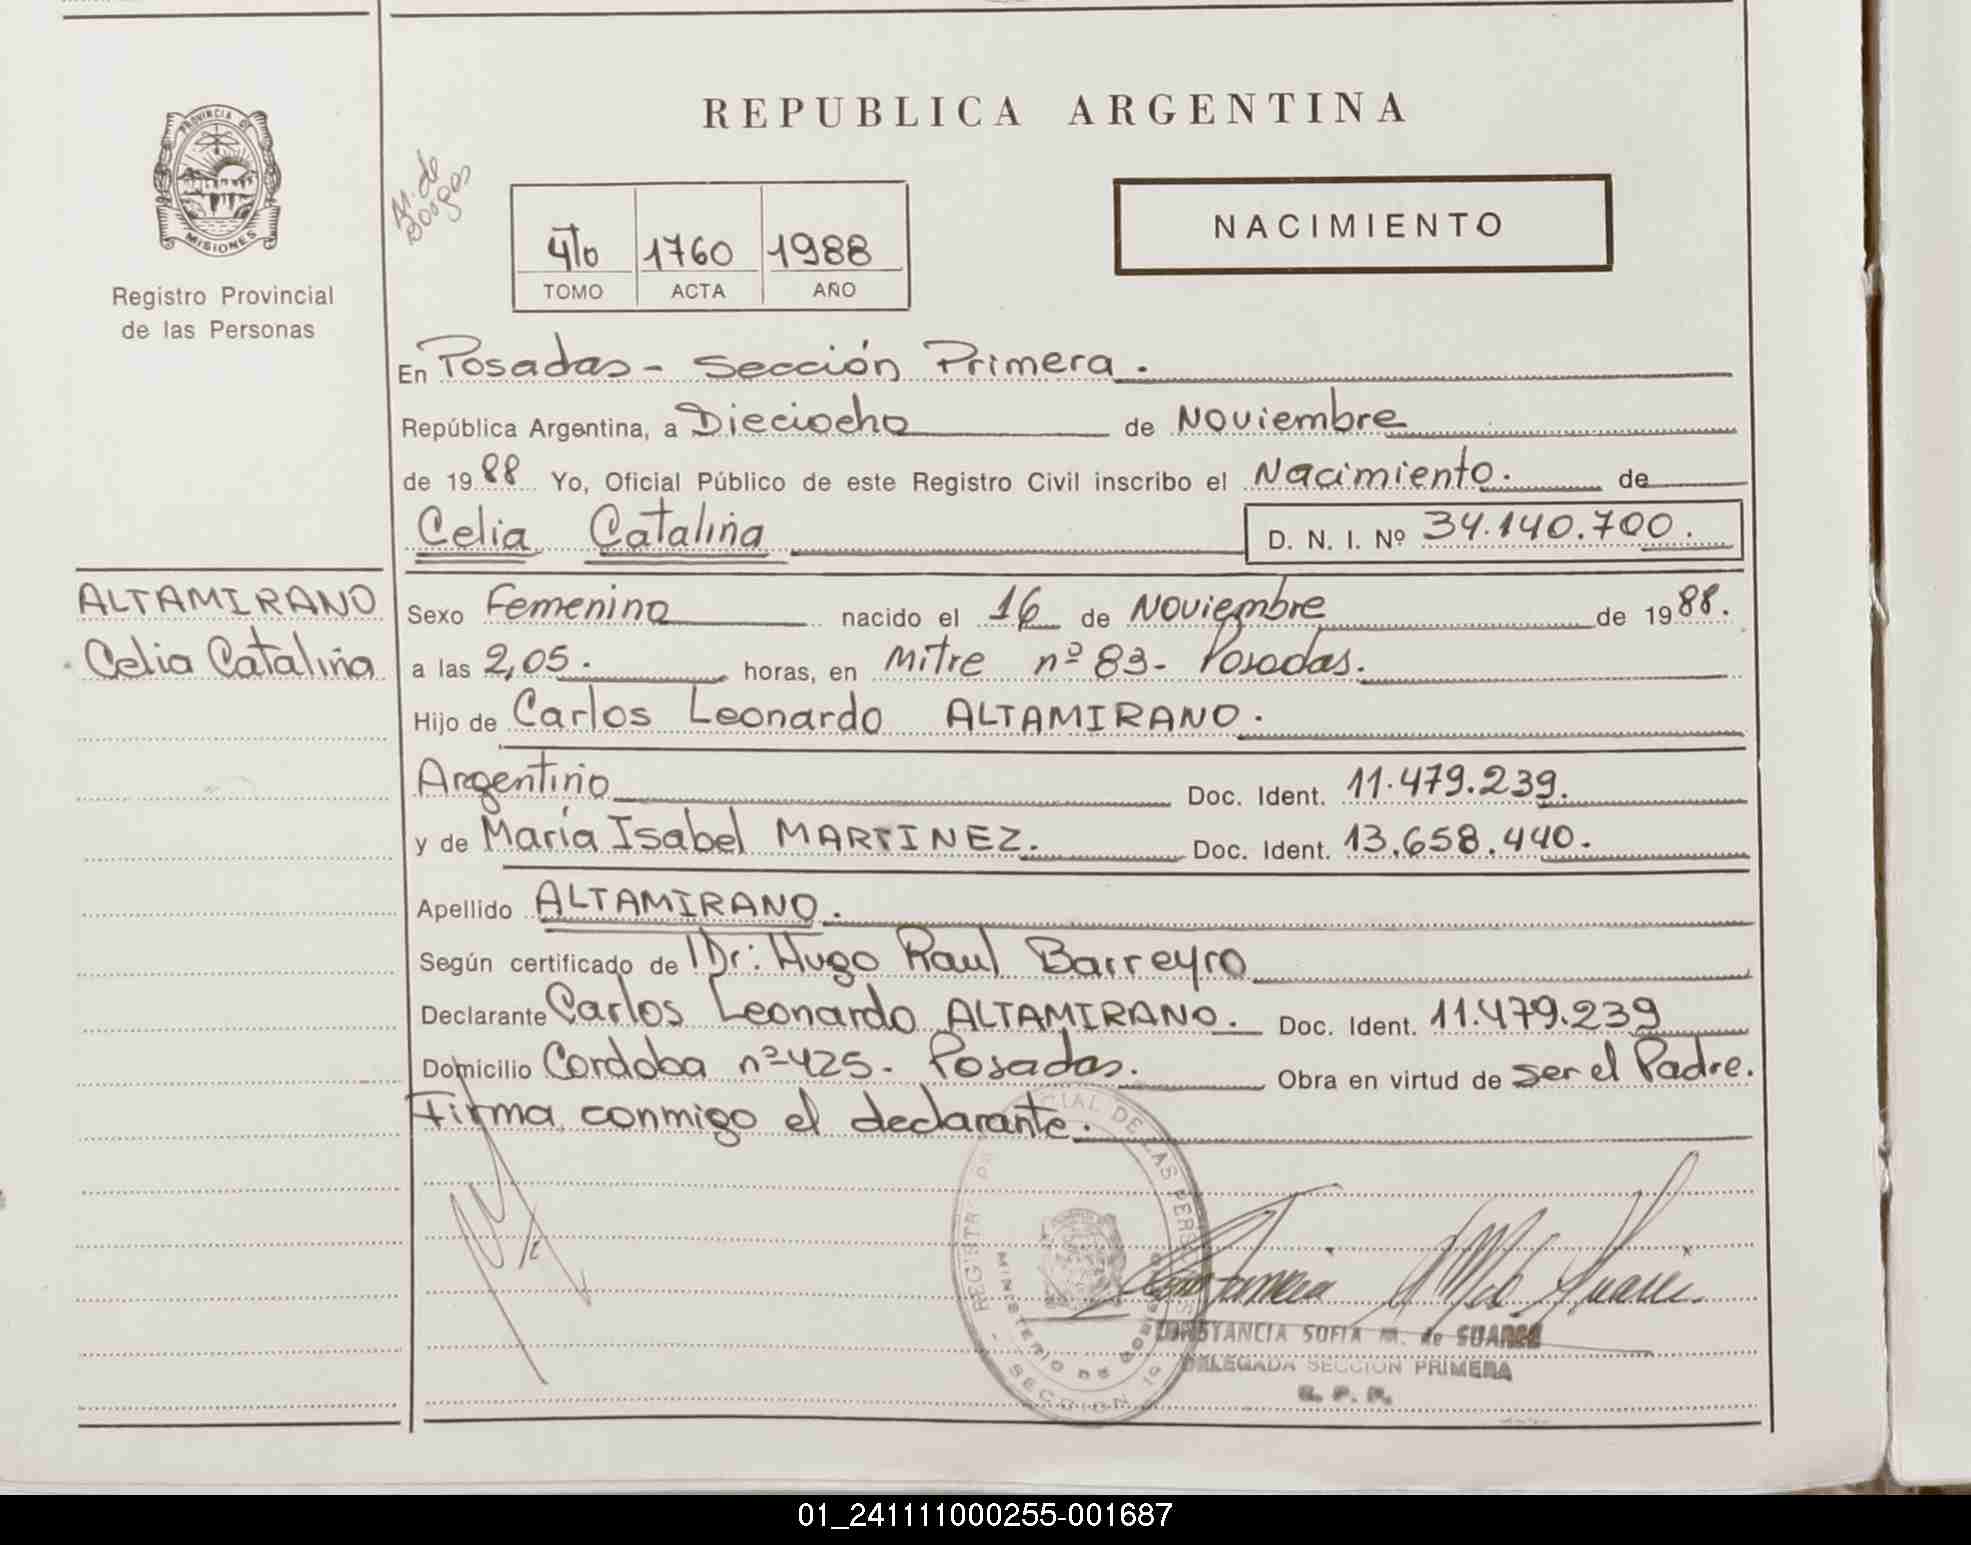 REPUBLICA ARGENTINA
PROVINCIA DE
MISIONES
Registro Provincial
de las Personas
M. de
4to 1760 1988
TOMO ACTA AÑO
NACIMIENTO
En Posadas - Sección Primera.
República Argentina, a Dieciocho de Noviembre
de 1988 Yo, Oficial Público de este Registro Civil inscribo el Nacimiento. de
Celia Catalina D. N. I. Nº 34.140.700.
ALTAMIRANO
Celia Catalina
Sexo Femenino nacido el 16 de Noviembre de 1988.
a las 2,05. horas, en Mitre nº 83- Posadas.
Hijo de Carlos Leonardo ALTAMIRANO.
Argentino Doc. Ident. 11.479.239.
y de María Isabel MARTINEZ. Doc. Ident. 13.658.440.
Apellido ALTAMIRANO.
Según certificado de Dr: Hugo Raul Barreyro
Declarante Carlos Leonardo ALTAMIRANO. Doc. Ident. 11.479.239
Domicilio Cordoba nº 425. Posadas. Obra en virtud de ser el Padre.
Firma conmigo el declarante.
CIAL DE LAS PERS
REGISTR
MINISTERIO DE GOBIERNO
SECCION 1º
CONSTANCIA SOFIA M. de SUAREZ
DELEGADA SECCION PRIMERA
R. P. P.
01_241111000255-001687